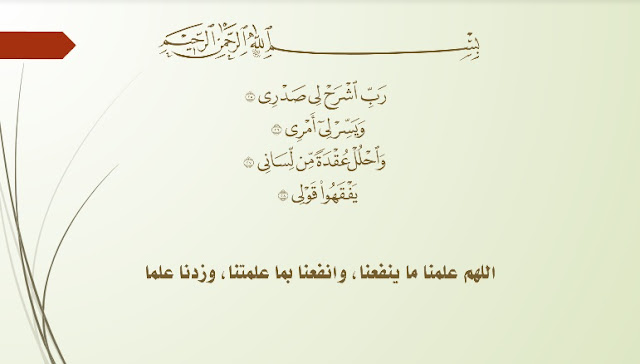 بِسْمِ ٱللَّهِ ٱلرَّحْمَٰنِ ٱلرَّحِيمِ
رَبِّ ٱشْرَحْ لِى صَدْرِى ٢٥
وَيَسِّرْ لِىٓ أَمْرِى ٢٦
وَٱحْلُلْ عُقْدَةً مِّن لِّسَانِى ٢٧
يَفْقَهُوا۟ قَوْلِى ٢٨
اللهم علمنا ما ينفعنا، وانفعنا بما علمتنا، وزدنا علما